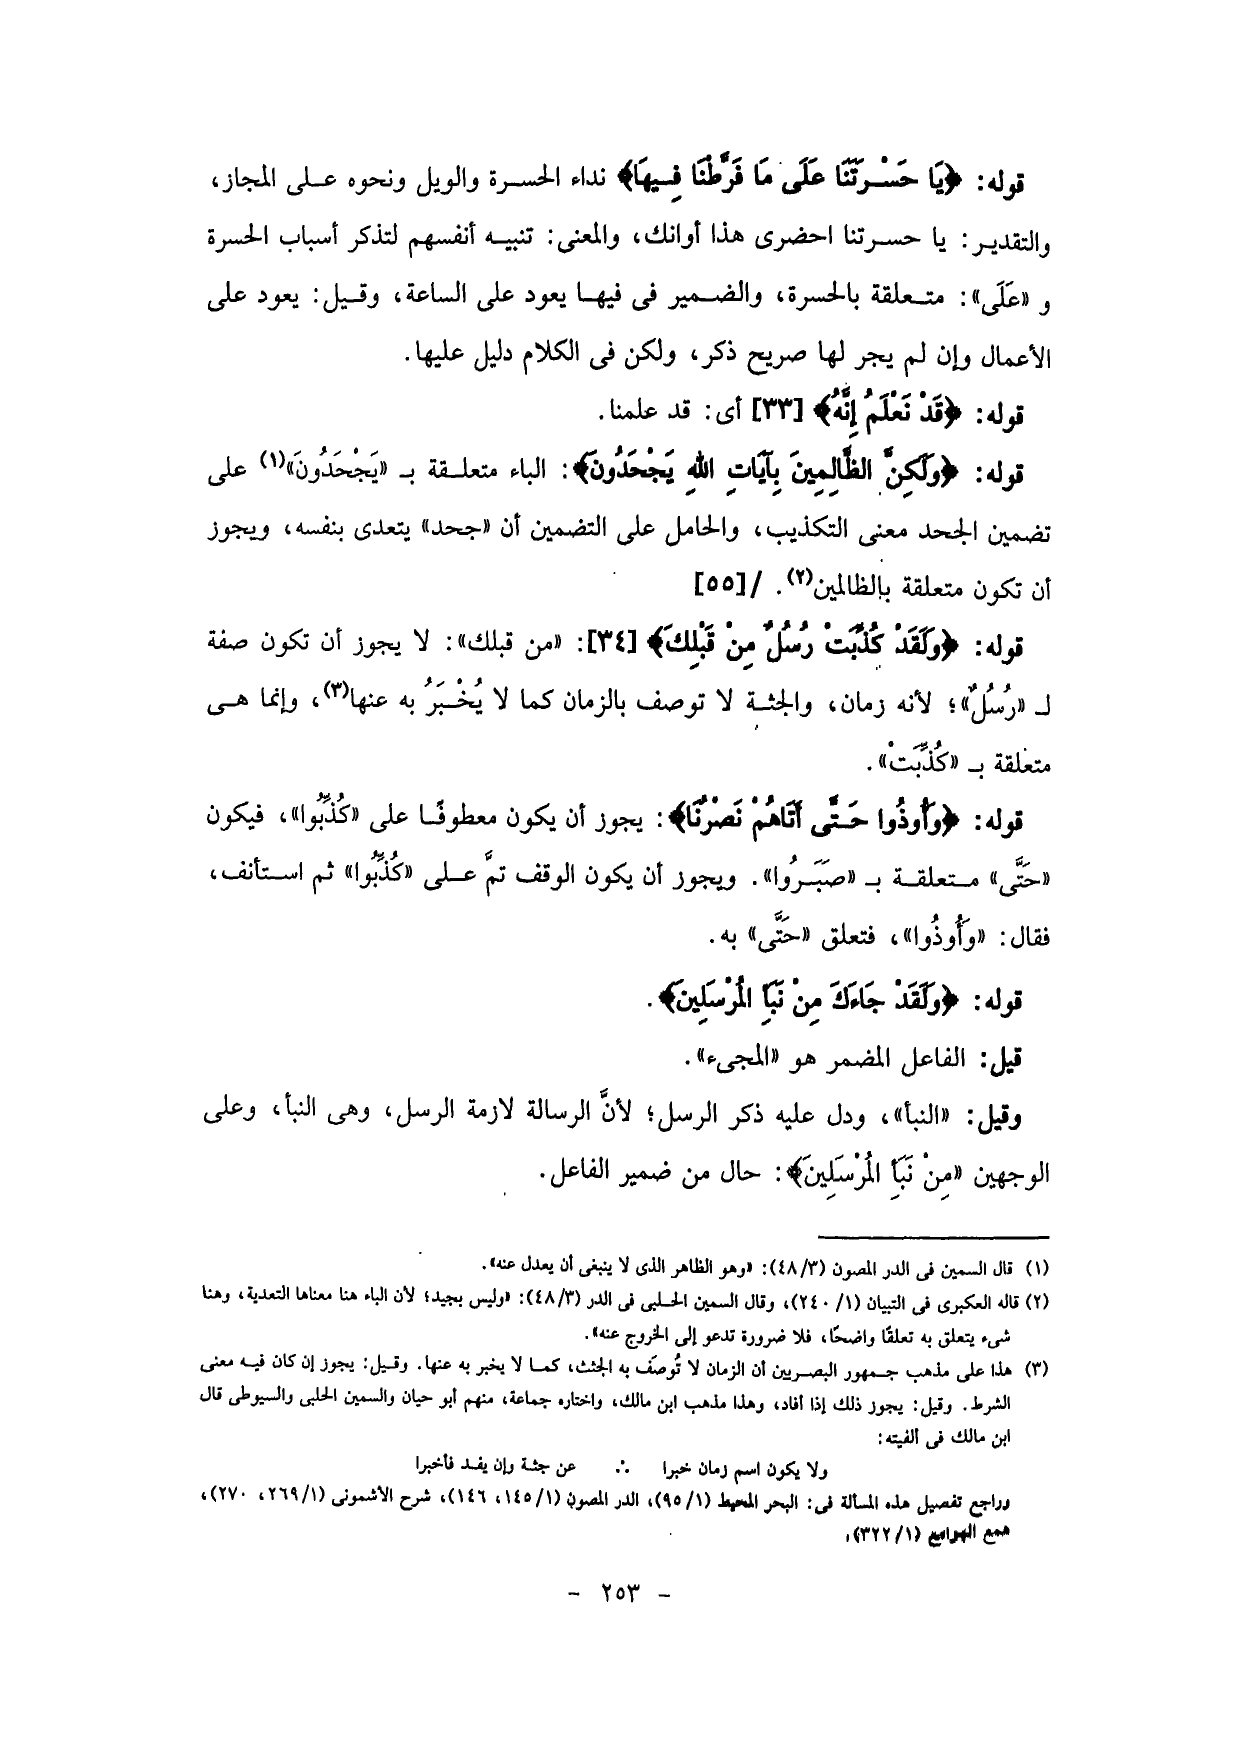 قوله: ﴿يَا حَسْرَتَنَا عَلَى مَا فَرَّطْنَا فِيهَا﴾ نداء الحسرة والويل ونحوه على المجاز،
والتقدير: يا حسرتنا احضرى هذا أوانك، والمعنى: تنبيه أنفسهم لتذكر أسباب الحسرة
و «عَلَى»: متعلقة بالحسرة، والضمير فى فيها يعود على الساعة، وقيل: يعود على
الأعمال وإن لم يجر لها صريح ذكر، ولكن فى الكلام دليل عليها.
قوله: ﴿قَدْ نَعْلَمُ إِنَّهُ﴾ [٣٣] أى: قد علمنا.
قوله: ﴿وَلَكِنَّ الظَّالِمِينَ بِآيَاتِ اللَّهِ يَجْحَدُونَ﴾: الباء متعلقة بـ «يَجْحَدُونَ»(١) على
تضمين الجحد معنى التكذيب، والحامل على التضمين أن «جحد» يتعدى بنفسه، ويجوز
أن تكون متعلقة بالظالمين(٢). /[٥٥]
قوله: ﴿وَلَقَدْ كُذِّبَتْ رُسُلٌ مِنْ قَبْلِكَ﴾ [٣٤]: «من قبلك»: لا يجوز أن تكون صفة
لـ «رُسُلٌ»؛ لأنه زمان، والجثة لا توصف بالزمان كما لا يُخْبَرُ به عنها(٣)، وإنما هى
متعلقة بـ «كُذِّبَتْ».
قوله: ﴿وَأُوذُوا حَتَّى أَتَاهُمْ نَصْرُنَا﴾: يجوز أن يكون معطوفًا على «كُذِّبُوا»، فيكون
«حَتَّى» متعلقة بـ «صَبَرُوا». ويجوز أن يكون الوقف تمَّ على «كُذِّبُوا» ثم استأنف،
فقال: «وَأُوذُوا»، فتعلق «حَتَّى» به.
قوله: ﴿وَلَقَدْ جَاءَكَ مِنْ نَبَأِ الْمُرْسَلِينَ﴾.
قيل: الفاعل المضمر هو «المجىء».
وقيل: «النبأ»، ودل عليه ذكر الرسل؛ لأنَّ الرسالة لازمة الرسل، وهى النبأ، وعلى
الوجهين «مِنْ نَبَأِ الْمُرْسَلِينَ﴾: حال من ضمير الفاعل.
(١) قال السمين فى الدر المصون (٤٨/٣): «وهو الظاهر الذى لا ينبغى أن يعدل عنه».
(٢) قاله العكبرى فى التبيان (٢٤٠/١)، وقال السمين الحلبى فى الدر (٤٨/٣): «وليس بجيد؛ لأن الباء هنا معناها التعدية، وهنا
شىء يتعلق به تعلقًا واضحًا، فلا ضرورة تدعو إلى الخروج عنه».
(٣) هذا على مذهب جمهور البصريين أن الزمان لا تُوصَف به الجثث، كما لا يخبر به عنها. وقيل: يجوز إن كان فيه معنى
الشرط. وقيل: يجوز ذلك إذا أفاد، وهذا مذهب ابن مالك، واختاره جماعة، منهم أبو حيان والسمين الحلبى والسيوطى قال
ابن مالك فى ألفيته:
ولا يكون اسم زمان خبرا ∴ عن جثة وإن يفد فأخبرا
وراجع تفصيل هذه المسألة فى: البحر المحيط (٩٥/١)، الدر المصون (١٤٥/١، ١٤٦)، شرح الأشمونى (٢٦٩/١، ٢٧٠)،
همع الهوامع (٣٢٢/١).
- ٢٥٣ -